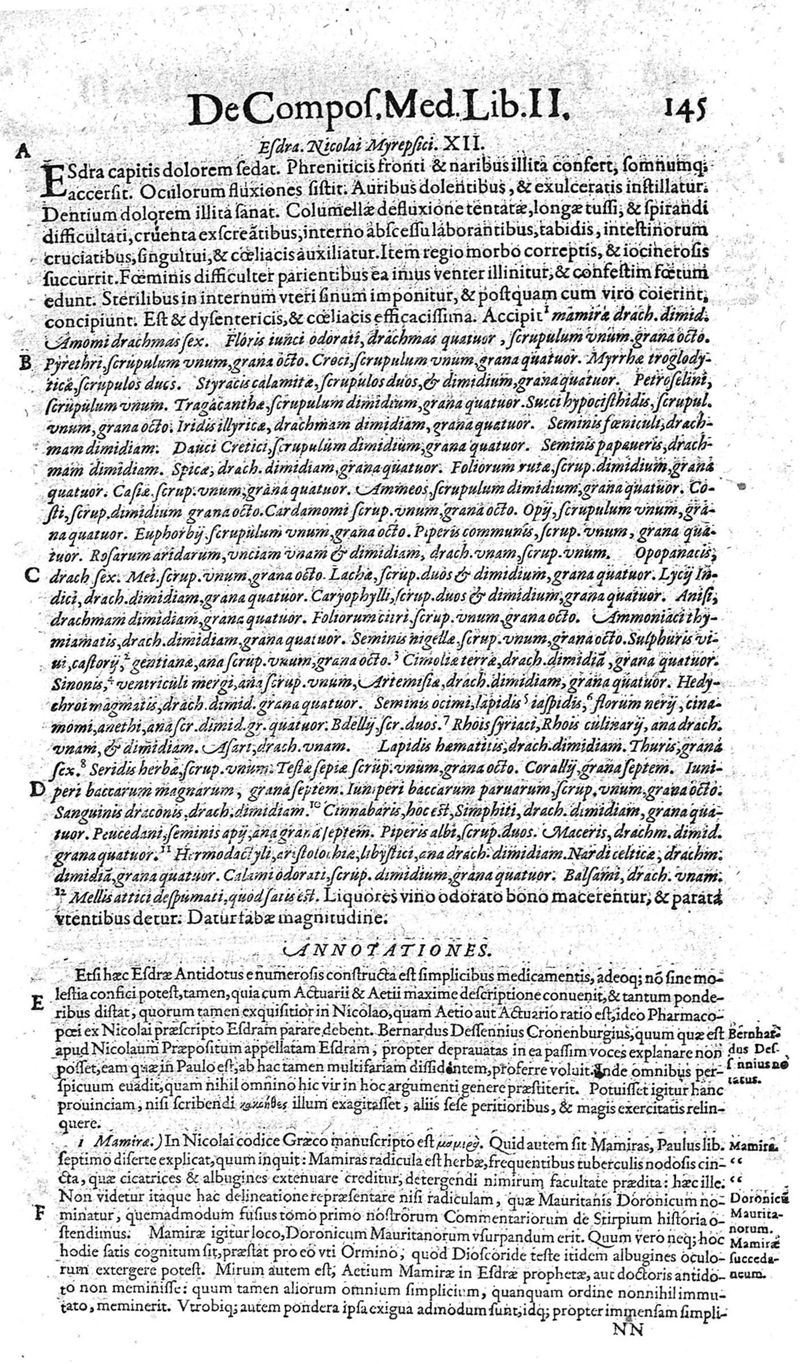 De Compos. Med. Lib. II. 145
Esdræ. Nicolai Myrepsici. XII.
A
ESdra capitis dolorem sedat. Phreniticis fronti & naribus illita confert, somnumq́;
accersit. Oculorum fluxiones sistit. Auribus dolentibus, & exulceratis instillatur.
Dentium dolorem illita sanat. Columellæ defluxione tentatæ, longæ tussi, & spirandi
difficultati, cruenta exscreãtibus, interno abscessu laborantibus, tabidis, intestinorum
cruciatibus, singultui, & cœliacis auxiliatur. Item regio morbo correptis, & iocinerosis
succurrit. Fœminis difficulter parientibus ea imus venter illinitur, & confestim fœtum
edunt. Sterilibus in internum vteri sinum imponitur, & postquam cum viro coierint,
concipiunt. Est & dysentericis, & cœliacis efficacissima. Accipit ¹ mamiræ drach. dimid.
Amomi drachmas sex. Floris iunci odorati, drachmas quatuor, scrupulum vnum, grana octo.
B Pyrethri, scrupulum vnum, grana octo. Croci, scrupulum vnum, grana quatuor. Myrrhæ troglody-
ticæ, scrupulos duos. Styracis calamitæ, scrupulos duos, & dimidium, grana quatuor. Petroselini,
scrupulum vnum. Tragacanthæ, scrupulum dimidium, grana quatuor. Succi hypocisthidis, scrupul.
vnum, grana octo. Iridis illyricæ, drachmam dimidiam, grana quatuor. Seminis fœniculi, drach-
mam dimidiam. Dauci Cretici, scrupulum dimidium, grana quatuor. Seminis papaueris, drach-
mam dimidiam. Spicæ, drach. dimidiam, grana quatuor. Foliorum rutæ, scrup. dimidium, grana
quatuor. Casiæ, scrup. vnum, grana quatuor. Ammeos, scrupulum dimidium, grana quatuor. Co-
sti, scrup. dimidium grana octo. Cardamomi scrup. vnum, grana octo. Opij, scrupulum vnum, gra-
na quatuor. Euphorbij, scrupulum vnum, grana octo. Piperis communis, scrup. vnum, grana qua-
tuor. Rosarum aridarum, vnciam vnam & dimidiam, drach. vnam, scrup. vnum. Opopanacis,
C drach. sex. Mei, scrup. vnum, grana octo. Lachæ, scrup. duos & dimidium, grana quatuor. Lycij In-
dici, drach. dimidiam, grana quatuor. Caryophylli, scrup. duos & dimidium, grana quatuor. Anisi,
drachmam dimidiam, grana quatuor. Foliorum citri, scrup. vnum, grana octo. Ammoniaci thy-
miamatis, drach. dimidiam, grana quatuor. Seminis nigellæ, scrup. vnum, grana octo. Sulphuris vi-
ui, castorij, ² gentianæ, ana scrup. vnum, grana octo. ³ Cimoliæ terræ, drach. dimidiã, grana quatuor.
Sinonis, ⁴ ventriculi mergi, ana scrup. vnum, Artemisiæ, drach. dimidiam, grana quatuor. Hedy-
chroi magmatis, drach. dimid. grana quatuor. Seminis ocimi, lapidis ⁵ iaspidis, ⁶ florum nerij, cina-
momi, anethi, ana scr. dimid. gr. quatuor. Bdellij, scr. duos. ⁷ Rhois syriaci, Rhois culinarij, ana drach.
vnam, & dimidiam. Asari, drach. vnam. Lapidis hæmatitis, drach. dimidiam. Thuris, grana
sex. ⁸ Seridis herbæ, scrup. vnum. Testæ sepiæ scrup. vnum, grana octo. Corallij, grana septem. Iuni-
D peri baccarum magnarum, grana septem. Iuniperi baccarum paruarum, scrup. vnum, grana octo.
Sanguinis draconis, drach. dimidiam. ¹⁰ Cinnabaris, hoc est, Simphiti, drach. dimidiam, grana qua-
tuor. Peucedani, seminis apij, ana grana septem. Piperis albi, scrup. duos. Maceris, drachm. dimid.
grana quatuor. ¹¹ Hermodactyli, aristolochiæ, libystici, ana drach. dimidiam. Nardi celticæ, drachm.
dimidiã, grana quatuor. Calami odorati, scrup. dimidium, grana quatuor. Balsami, drach. vnam.
¹² Mellis attici despumati, quod satis est. Liquores vino odorato bono macerentur, & parata
vtentibus detur. Datur fabæ magnitudine.
ANNOTATIONES.
Etsi hæc Esdræ Antidotus e numerosis constructa est simplicibus medicamentis, adeoq́; nõ sine mo-
E lestia confici potest, tamen, quia cum Actuarii & Aetii maxime descriptione conuenit, & tantum ponde-
ribus distat, quorum tamen exquisitior in Nicolao, quam Aetio aut Actuario ratio est, ideo Pharmaco-
pœi ex Nicolai præscripto Esdram parare debent. Bernardus Dessennius Cronenburgius, quum quæ est
apud Nicolaum Præpositum appellatam Esdram, propter deprauatas in ea passim voces explanare non
posset, eam quæ in Paulo est, ab hac tamen multifariam dissidentem, proferre voluit. Unde omnibus per-
spicuum euadit, quam nihil omnino hic vir in hoc argumenti genere præstiterit. Potuisset igitur hanc
prouinciam, nisi scribendi κακοήθες illum exagitasset, aliis sese peritioribus, & magis exercitatis relin-
quere.
Bernhar-
dus Des-
sennius no
tatus.
1 Mamiræ.) In Nicolai codice Græco manuscripto est μαμιρῆς. Quid autem sit Mamiras, Paulus lib.
septimo diserte explicat, quum inquit: Mamiras radicula est herbæ, frequentibus tuberculis nodosis cin-
cta, quæ cicatrices & albugines extenuare creditur, detergendi nimirum facultate prædita: hæc ille.
Non videtur itaque hac delineatione repræsentare nisi radiculam, quæ Mauritanis Doronicum no-
F minatur, quemadmodum fusius tomo primo nostrorum Commentariorum de Stirpium historia o-
stendimus. Mamiræ igitur loco, Doronicum Mauritanorum vsurpandum erit. Quum vero neq́; hoc
hodie satis cognitum sit, præstat pro eo vti Ormino, quod Dioscoride teste itidem albugines oculo-
rum extergere potest. Mirum autem est, Aetium Mamiræ in Esdræ prophetæ, aut doctoris antido-
to non meminisse: quum tamen aliorum omnium simplicium, quanquam ordine nonnihil immu-
tato, meminerit. Vtrobiq́; autem pondera ipsa exigua admodum sunt, idq́; propter immensam simpli-
Mamira.
“
“
Doronicũ
Maurita-
norum.
Mamiræ
succeda-
neum.
NN